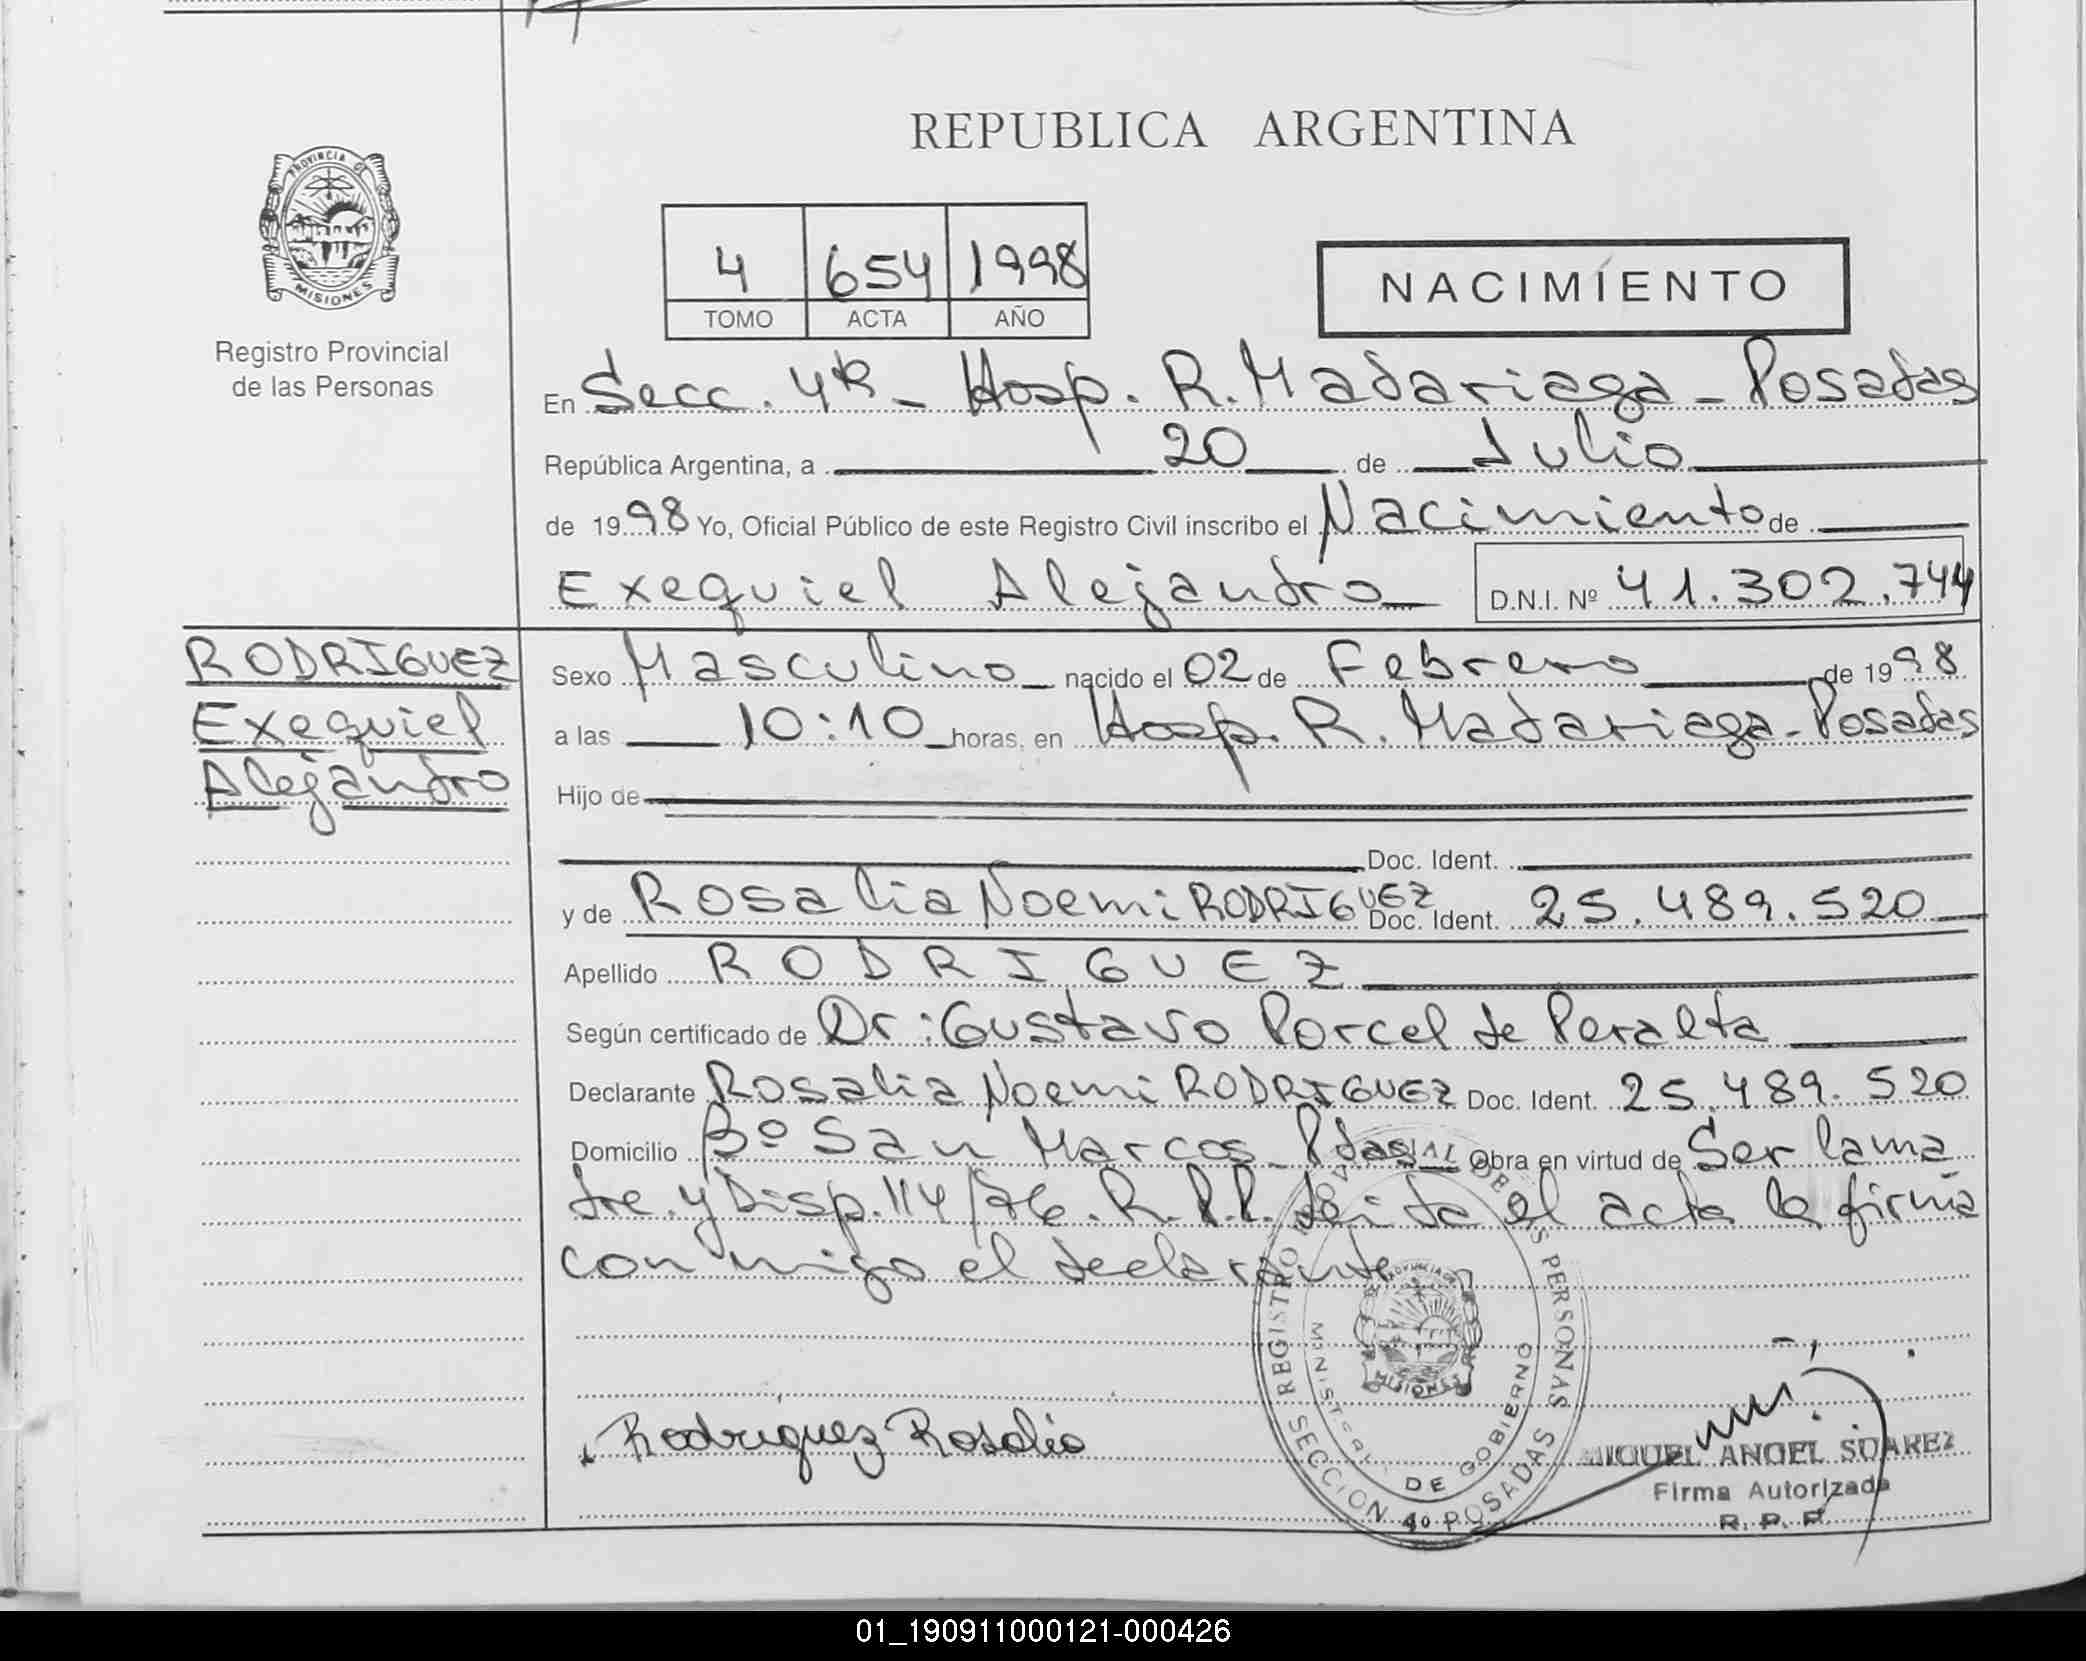 REPUBLICA ARGENTINA
PROVINCIA DE
MISIONES
Registro Provincial
de las Personas
4 654 1998
TOMO ACTA AÑO
NACIMIENTO
En Secc. 4ta - Hosp. R. Madariaga - Posadas
República Argentina, a 20 de Julio
de 1998 Yo, Oficial Público de este Registro Civil inscribo el Nacimiento de
Exequiel Alejandro D.N.I. Nº 41.302.744
RODRIGUEZ
Exequiel
Alejandro
Sexo Masculino nacido el 02 de Febrero de 1998
a las 10:10 horas, en Hosp. R. Madariaga - Posadas
Hijo de
Doc. Ident.
y de Rosalia Noemi RODRIGUEZ Doc. Ident. 25.489.520
Apellido RODRIGUEZ
Según certificado de Dr: Gustavo Porcel de Peralta
Declarante Rosalia Noemi RODRIGUEZ Doc. Ident. 25.489.520
Domicilio Bº San Marcos - Pdas Obra en virtud de Ser la ma
dre. y Disp. 114/76. R.P.P. leida el acta la firma
conmigo el declarante
REGISTRO PROVINCIAL DE LAS PERSONAS
MINISTERIO DE GOBIERNO
MISIONES
SECCION 4º POSADAS
Rodriguez Rosalia
MIGUEL ANGEL SUAREZ
Firma Autorizada
R. P. P.
01_190911000121-000426